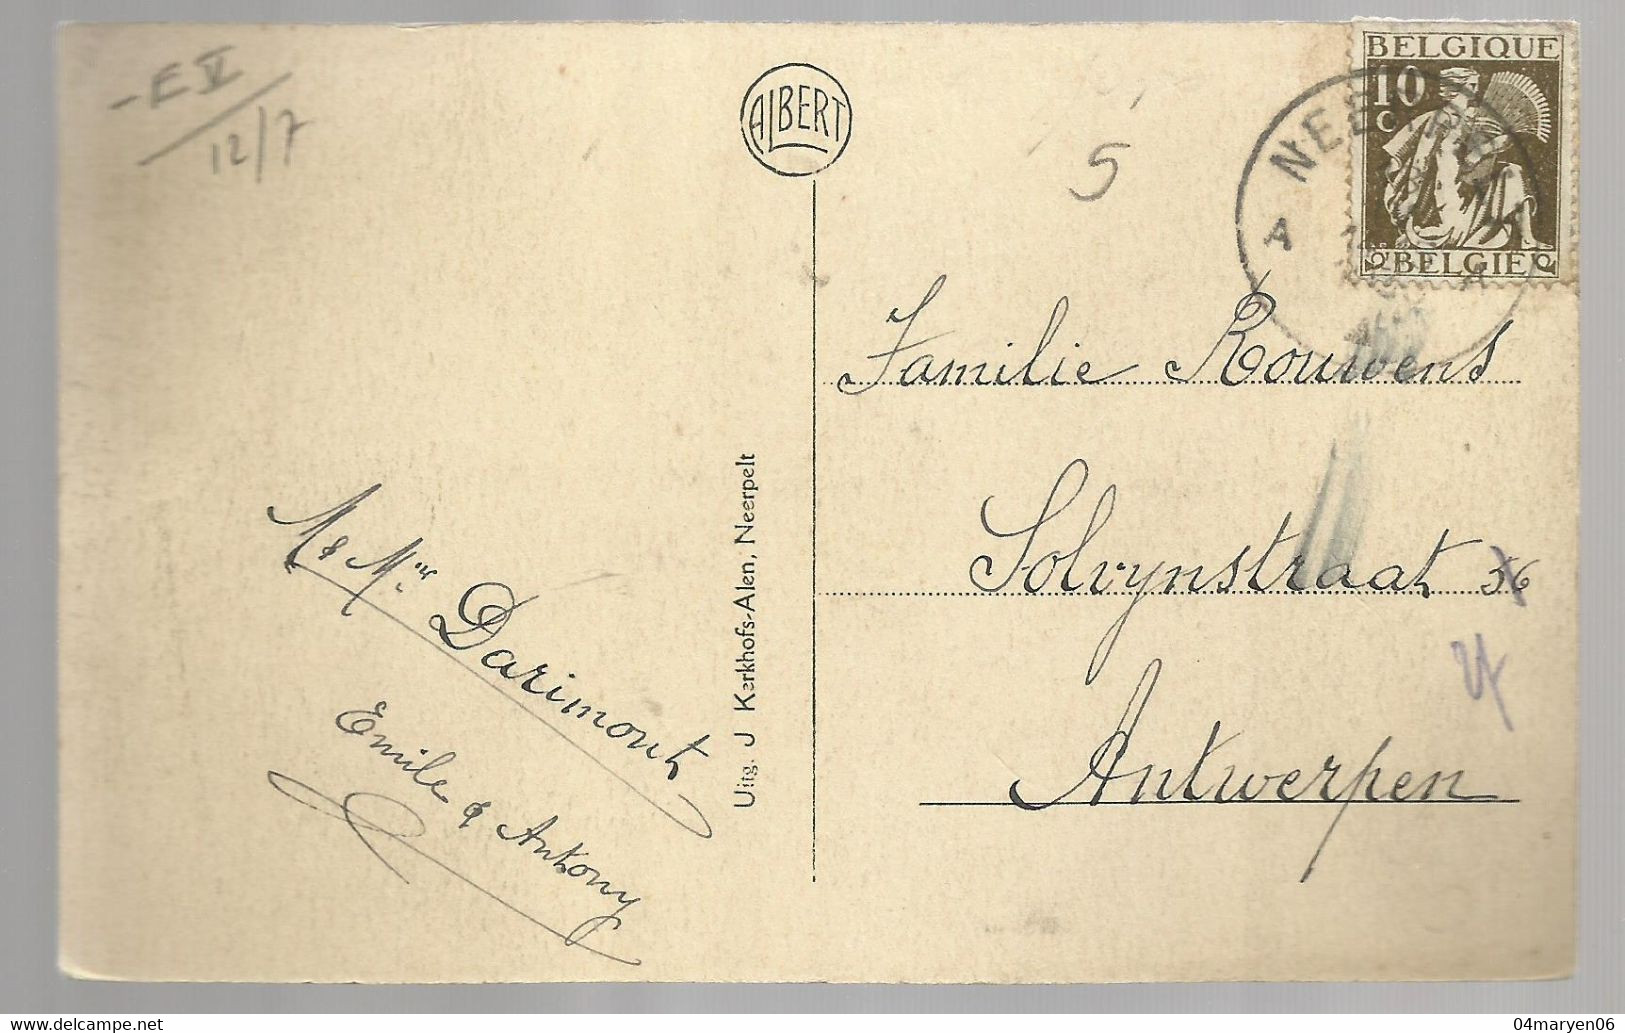 -E V
12/7
ALBERT
5
BELGIQUE
10
C
BELGIE
A
Familie Rouwens
Solvynstraat 36
Antwerpen
Uitg. J Kerkhofs-Alen, Neerpelt
Mr & Mme Darimont
Emile & Antony
04maryen06